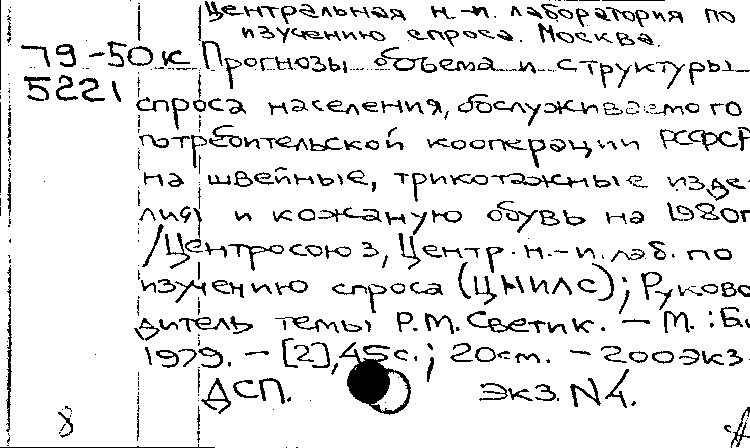 Центральная н.-и. лаборатория по
изучению спроса. Москва.
79-50к Прогнозы объема и структуры
5221 спроса населения, обслуживаемого
потребительской кооперации РСФСР
на швейные, трикотажные изде-
лия и кожаную обувь на 1980г
/Центросоюз, Центр. н.-и. лаб. по
изучению спроса (ЦНИЛС); Руково
дитель темы Р.М. Светик. — М.: Б.
1979. — [2], 45с.; 20см. — 200экз
ДСП. экз. N4.
8